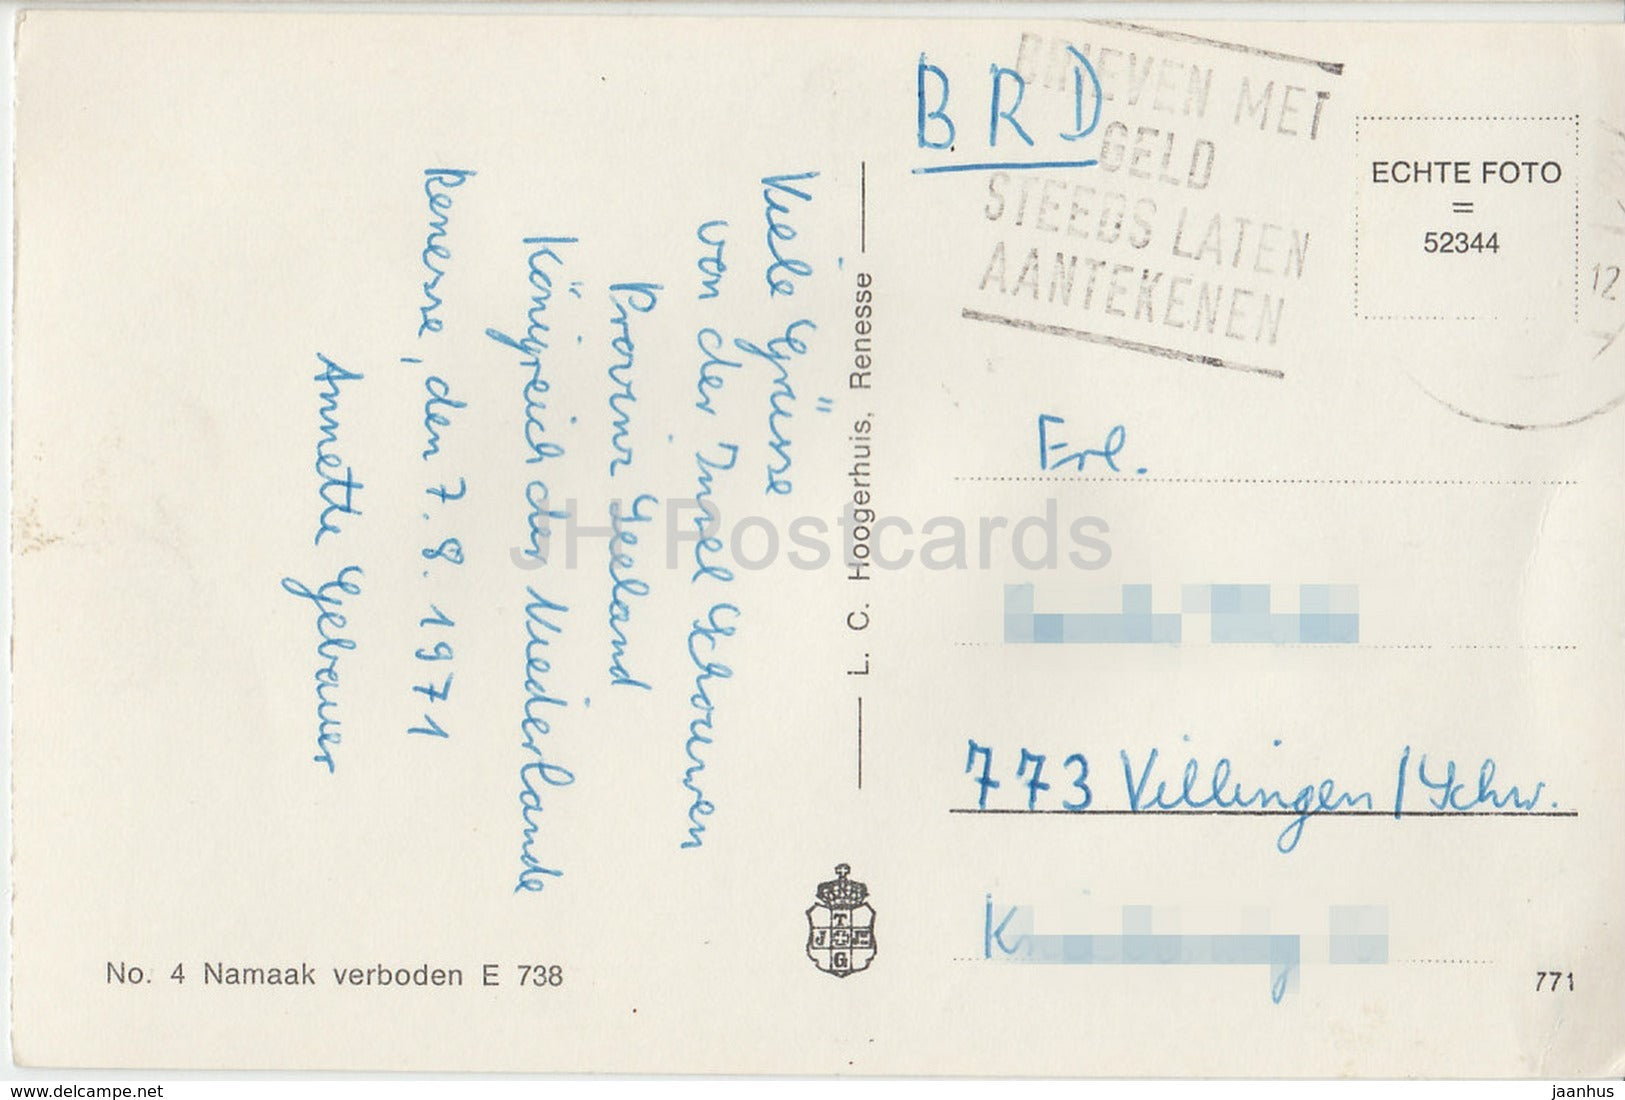 Viele Grüsse
von der Insel Schouwen
Provinz Seeland
Königreich der Niederlande
Renesse, den 7.8.1971
Annette Gebauer
No. 4 Namaak verboden E 738
L. C. Hoogerhuis, Renesse
T
G
BRD
BRIEVEN MET
GELD
STEEDS LATEN
AANTEKENEN
ECHTE FOTO
=
52344
12
Frl.
773 Villingen/Schw.
771
JH Postcards
www.delcampe.net
jaanhus